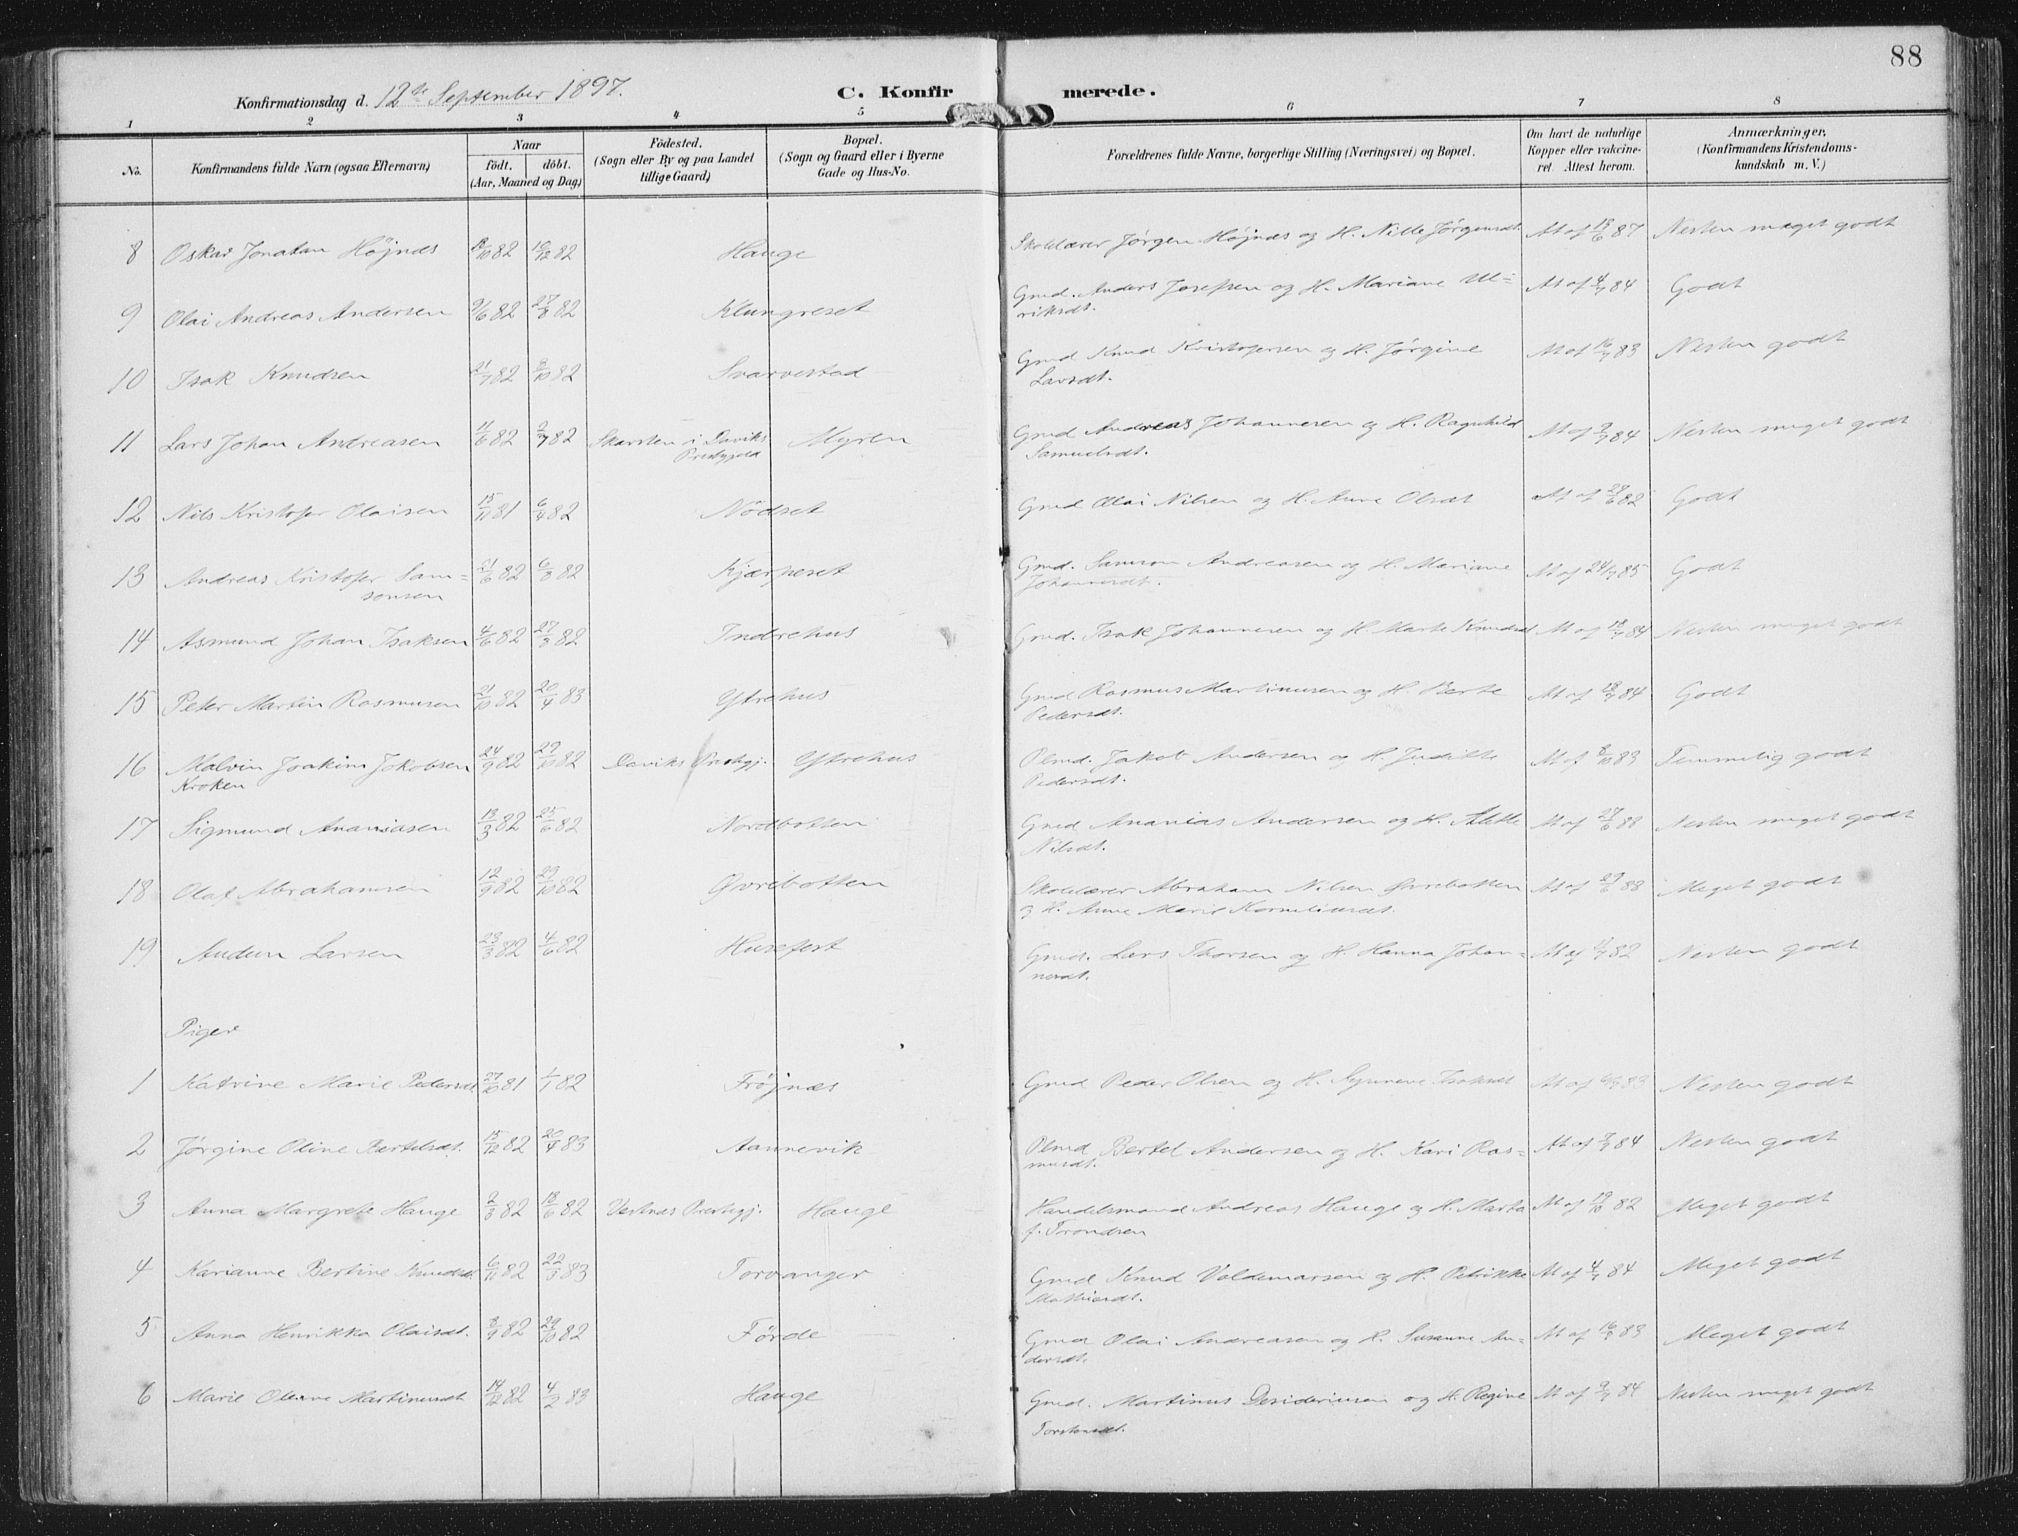 88
Konfirmationsdag d. 12te September 1897.
C. Konfirmerede.
1 2 3 4 5 6 7 8
No.
Konfirmandens fulde Navn (ogsaa Efternavn)
Naar
födt. döbt.
(Aar, Maaned og Dag)
Födested.
(Sogn eller By og paa Landet
tillige Gaard)
Bopæl.
(Sogn og Gaard eller i Byerne
Gade og Hus-No.
Forældrenes fulde Navne, borgerlige Stilling (Næringsvei) og Bopæl.
Om havt de naturlige
Kopper eller vakcine-
ret. Attest herom.
Anmærkninger,
(Konfirmandens Kristendoms-
kundskab m. V.)
8 Oskar Jonatan Höjnæs 82 10/12 82 Hauge Skolelærer Jørgen Höjnæs og H. Nille Jørgensdt. At af 87 Nesten meget godt
9 Olai Andreas Andersen 9/6 82 27/8 82 Klungreset Gmd. Anders Josefsen og H. Mariane Ul=
riksdt. At af 4/7 84 Godt
10 Isak Knudsen 21/7 82 8/10 82 Svarvestad Gmd Knud Kristofersen og H. Jørgine
Larsdt. At af 83 Nesten godt
11 Lars Johan Andreasen 11/6 82 2/7 82 Skarsten i Daviks
Prestegjeld Myren Gmd Andreas Johannesen og H. Ragnhild
Samuelsdt. At af 84 Nesten meget godt
12 Nils Kristofer Olaisen 15/11 81 6/4 82 Nödset Gmd Olai Nilsen og H. Anne Olsdt At af 82 Godt
13 Andreas Kristofer Sam=
sonsen 21/6 82 6/8 82 Kjærpeset Gmd. Samson Andreasen og H. Mariane
Johannesdt. At af 85 Godt
14 Asmund Johan Isaksen 4/6 82 27/8 82 Indrehus Gmd. Isak Johannesen og H. Marte Knudsd At af 84 Nesten meget godt
15 Peter Martin Rasmusen 21/10 82 20/4 83 Ytrehus Gmd Rasmus Martinusen og H. Berte
Pedersdt. At af 84 Godt
16 Malvin Joakim Jakobsen
Kroken 24/9 82 29/10 82 Daviks Prestegj. Ytrehus Plmd. Jakob Andersen og H. Juditte
Pedersdt. At af 8/10 83 Temmelig godt
17 Sigmund Ananiasen 13/3 82 25/6 82 Nordbotten Gmd Ananias Andersen og H. Alette
Nilsdt. At af Nesten meget godt
18 Olaf Abrahamsen 12/9 82 29/10 82 Øvrebotten Skolelærer Abraham Nilsen Øvrebotten
og H. Anne Marie Korneliusdt. At af 83 Meget godt
19 Audun Larsen 23/3 82 4/6 82 Husefest Gmd. Lars Thorsen og H. Hanna Johan=
nesdt. At af 82 Nesten godt
Piger
1 Katrine Marie Pedersdt 27/10 81 1/1 82 Frøjnæs Gmd Peder Olsen og H. Synneve Isaksdt At af 83 Nesten godt
2 Jørgine Oline Bertelsdt. 15/12 82 20/4 83 Aannevik Plmd Bertel Andersen og H. Kari Ras=
musdt. At af 84 Nesten godt
3 Anna Margrete Hauge 2/3 82 18/6 82 Vestnæs Prestegj. Hauge Handelsmand Andreas Hauge og H. Marta
f. Trondsen At af 82 Meget godt
4 Karianne Bertine Knudsdt. 6/11 82 22/3 83 Torvanger Gmd Knud Valdemarsen og H. Petrikke
Mathiasdt. At af 4/7 84 Meget godt
5 Anna Henrikka Olaisdt. 8/9 82 29/10 82 Førde Gmd Olai Andreasen og H. Susanne An=
dersdt. At af 83 Meget godt
6 Marie Oleane Martinusdt 14/12 82 4/2 83 Hauge Gmd. Martinus Desideriusen og H. Regine
Torstensdt. At af 84 Nesten meget godt